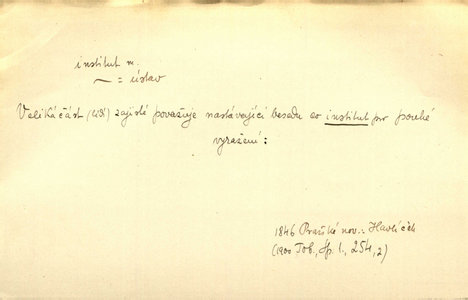 institut m.
~ = ústav
Veliká část (lidí) zajisté považuje nastávající besedu co institut pr pouhé
vyražení:
1846 Pražské nov.: Havlíček
(1900 Tob., Sp. 1., 254, 2)